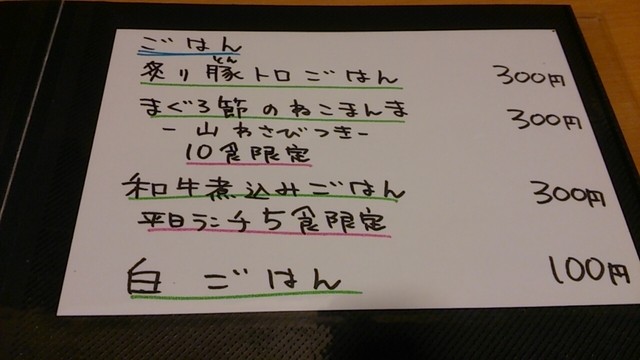 ごはん
炙り豚トロごはん 300円
とん
まぐろ節のねこまんま 300円
-山わさびつき-
10食限定
和牛煮込みごはん 300円
平日ランチ5食限定
白ごはん 100円